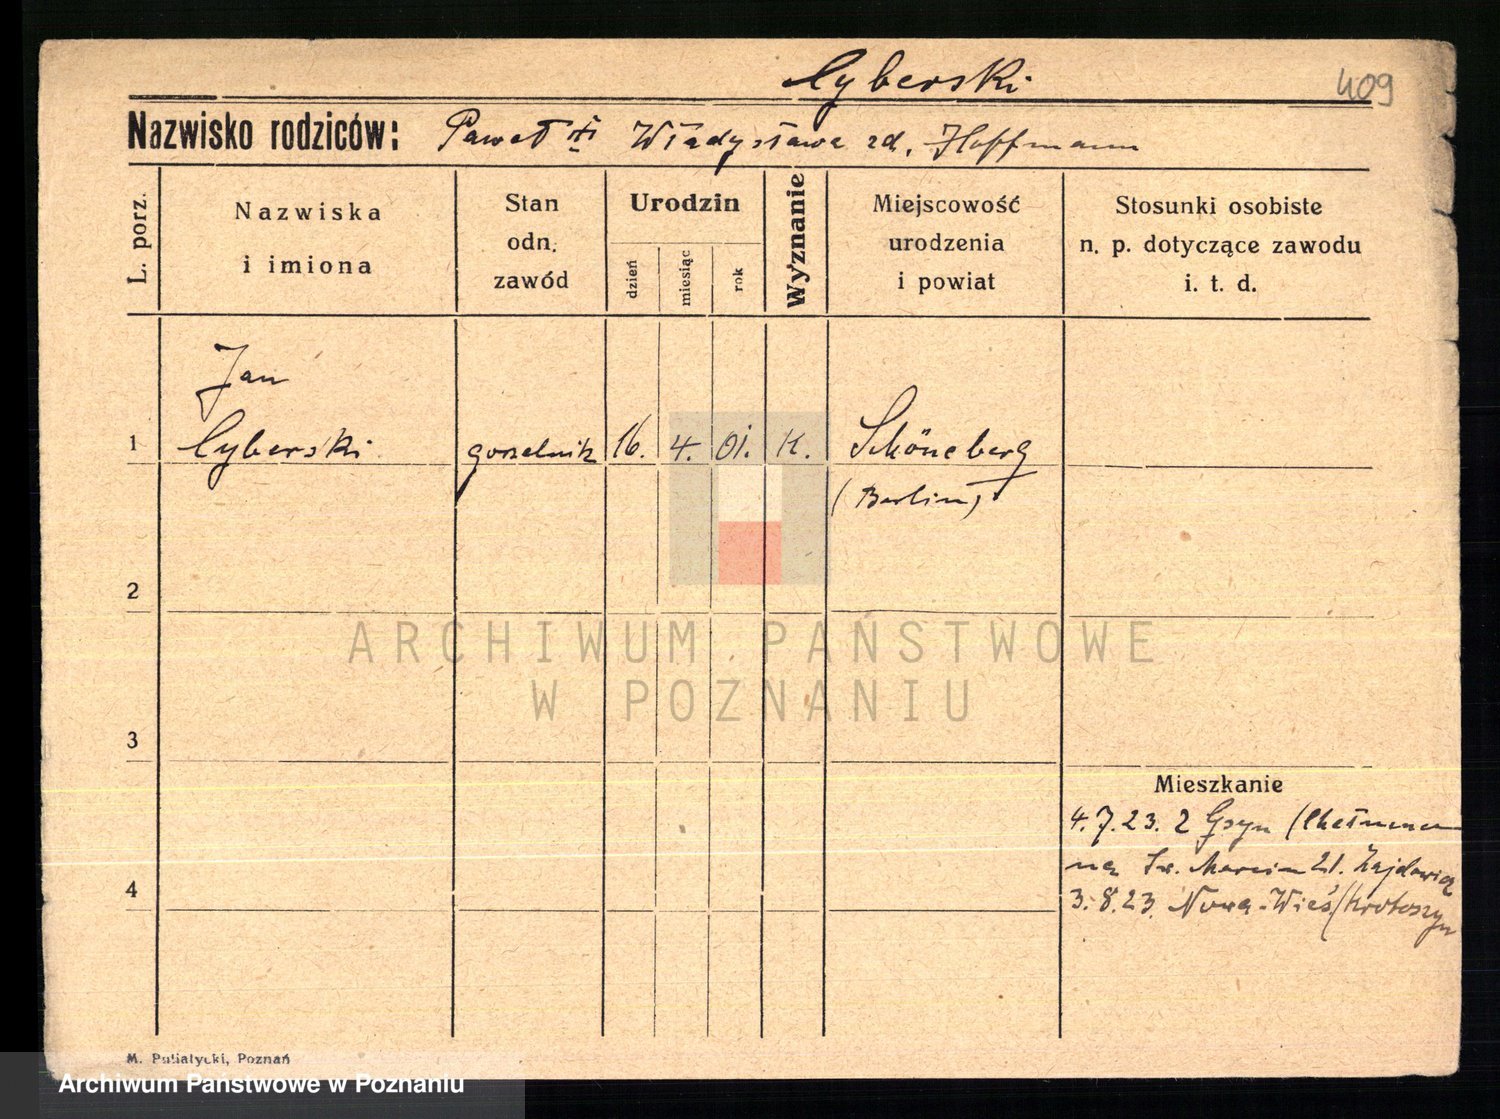 Cyberski
409
Nazwisko rodziców: Paweł i Władysława zd. Hoffmann
L. porz.
Nazwiska
i imiona
Stan
odn.
zawód
Urodzin
dzień
miesiąc
rok
Wyznanie
Miejscowość
urodzenia
i powiat
Stosunki osobiste
n. p. dotyczące zawodu
i. t. d.
Jan
1 Cyberski gorzelnik 16. 4. 01. K. Schöneberg
(Berlin)
2
ARCHIWUM PAŃSTWOWE
W POZNANIU
3
Mieszkanie
4. 7. 23. z (Chełmna
na Św. Marcin 21.
3. 8. 23. Nowa-Wieś/Krotoszyn
4
M. Putiatycki, Poznań
Archiwum Państwowe w Poznaniu